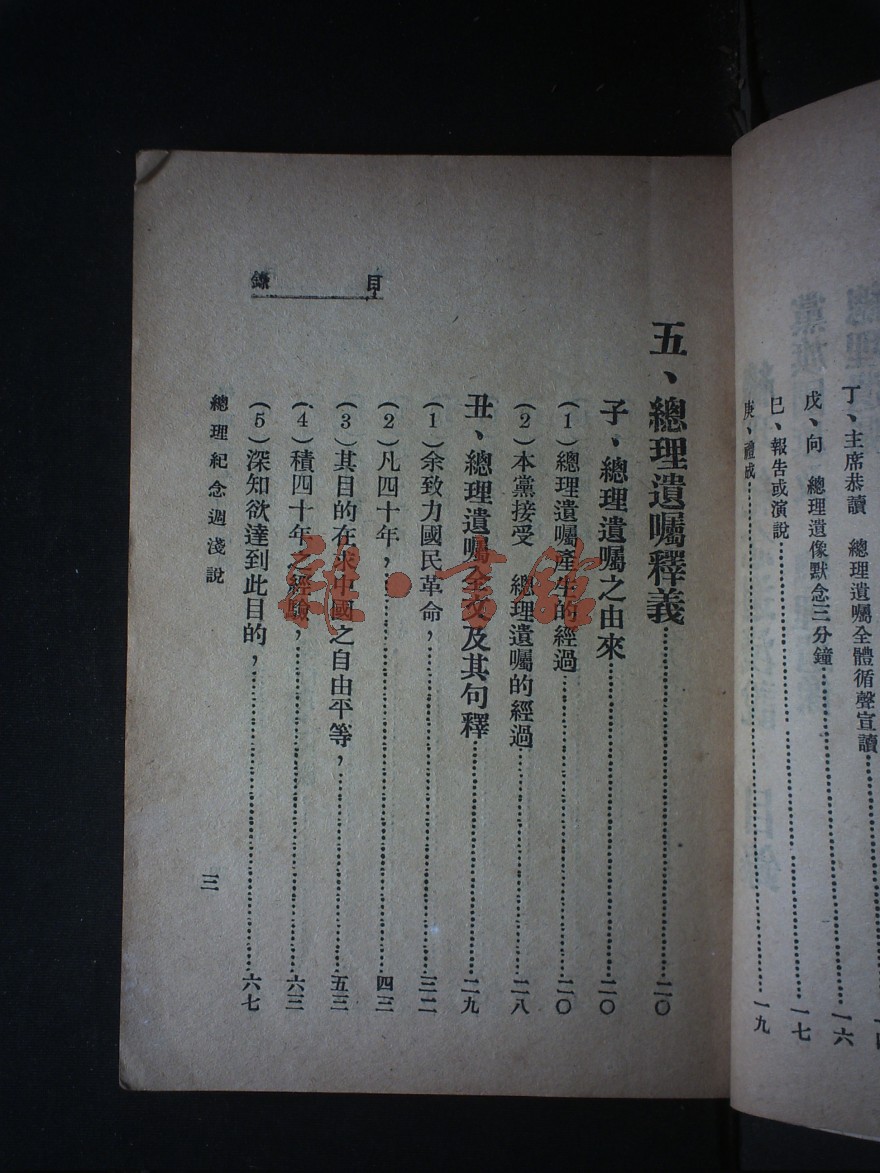 丁、主席恭讀　總理遺囑全體循聲宣讀
戊、向　總理遺像默念三分鐘…………一六
巳、報告或演說…………一七
庚、禮成…………一九
目錄
五、總理遺囑釋義…………二〇
子、總理遺囑之由來…………二〇
(1)總理遺囑產生的經過…………二〇
(2)本黨接受　總理遺囑的經過…………二八
丑、總理遺囑全文及其句釋…………二九
(1)余致力國民革命，…………三二
(2)凡四十年，…………四三
(3)其目的在求中國之自由平等，…………五三
(4)積四十年之經驗，…………六三
(5)深知欲達到此目的，…………六七
總理紀念週淺說
三
雜·書館